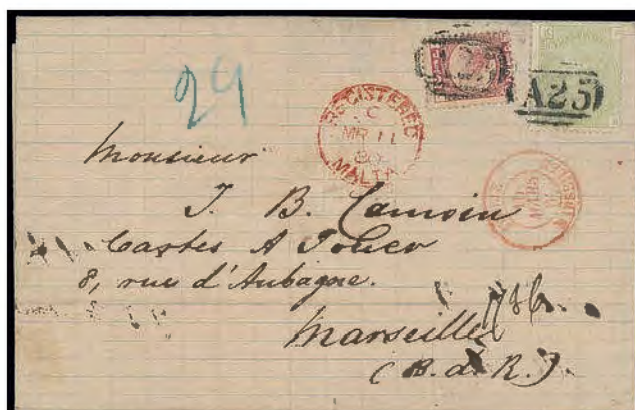 29
A25
REGISTERED
C
MR 11
80
MALTA
Monsieur
J. B. Camoin
Cartes A Jouer
8, rue d'Aubagne.
Marseille
(B. d. R.)